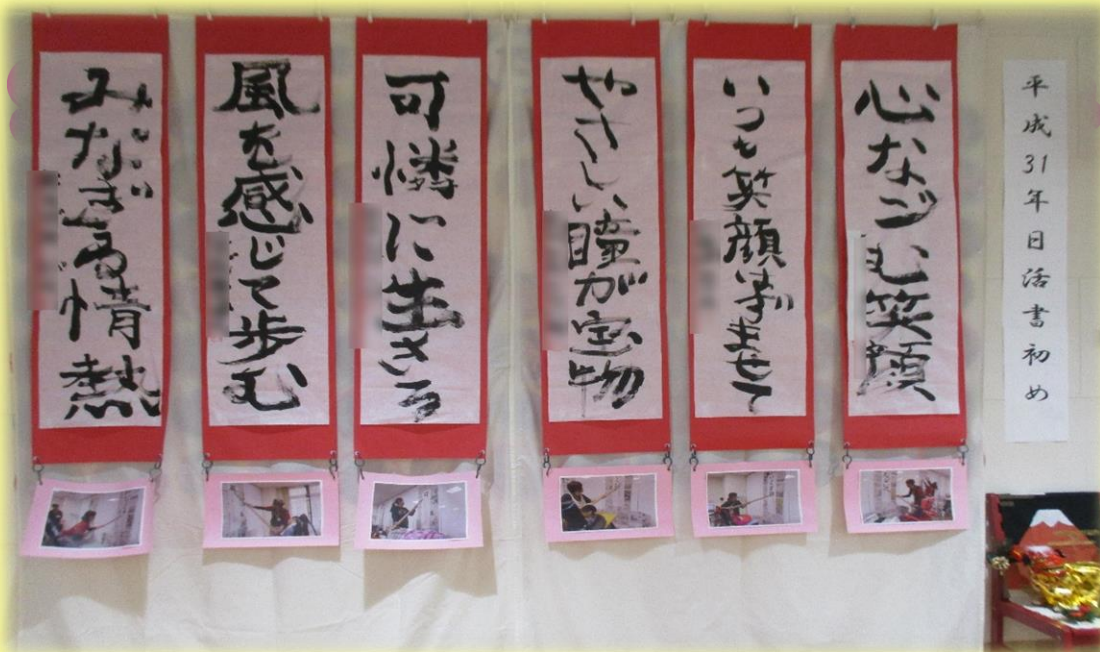 平成31年日活書初め
心なごむ笑顔
いつも笑顔はずませて
やさしい瞳が宝物
可憐に生きる
風を感じて歩む
みなぎる情熱